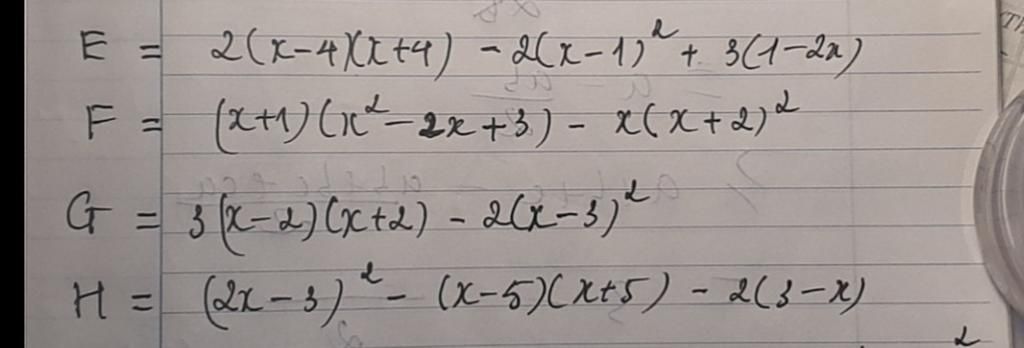 E = 2(x-4)(x+4) - 2(x-1)² + 3(1-2x)
F = (x+1)(x²-2x+3) - x(x+2)²
G = 3(x-2)(x+2) - 2(x-3)²
H = (2x-3)² - (x-5)(x+5) - 2(3-x)
2